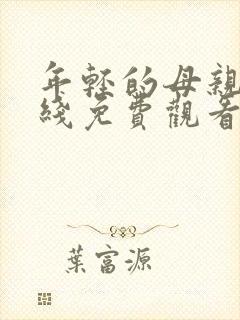 年輕的母親
綫免費觀看
葉富源